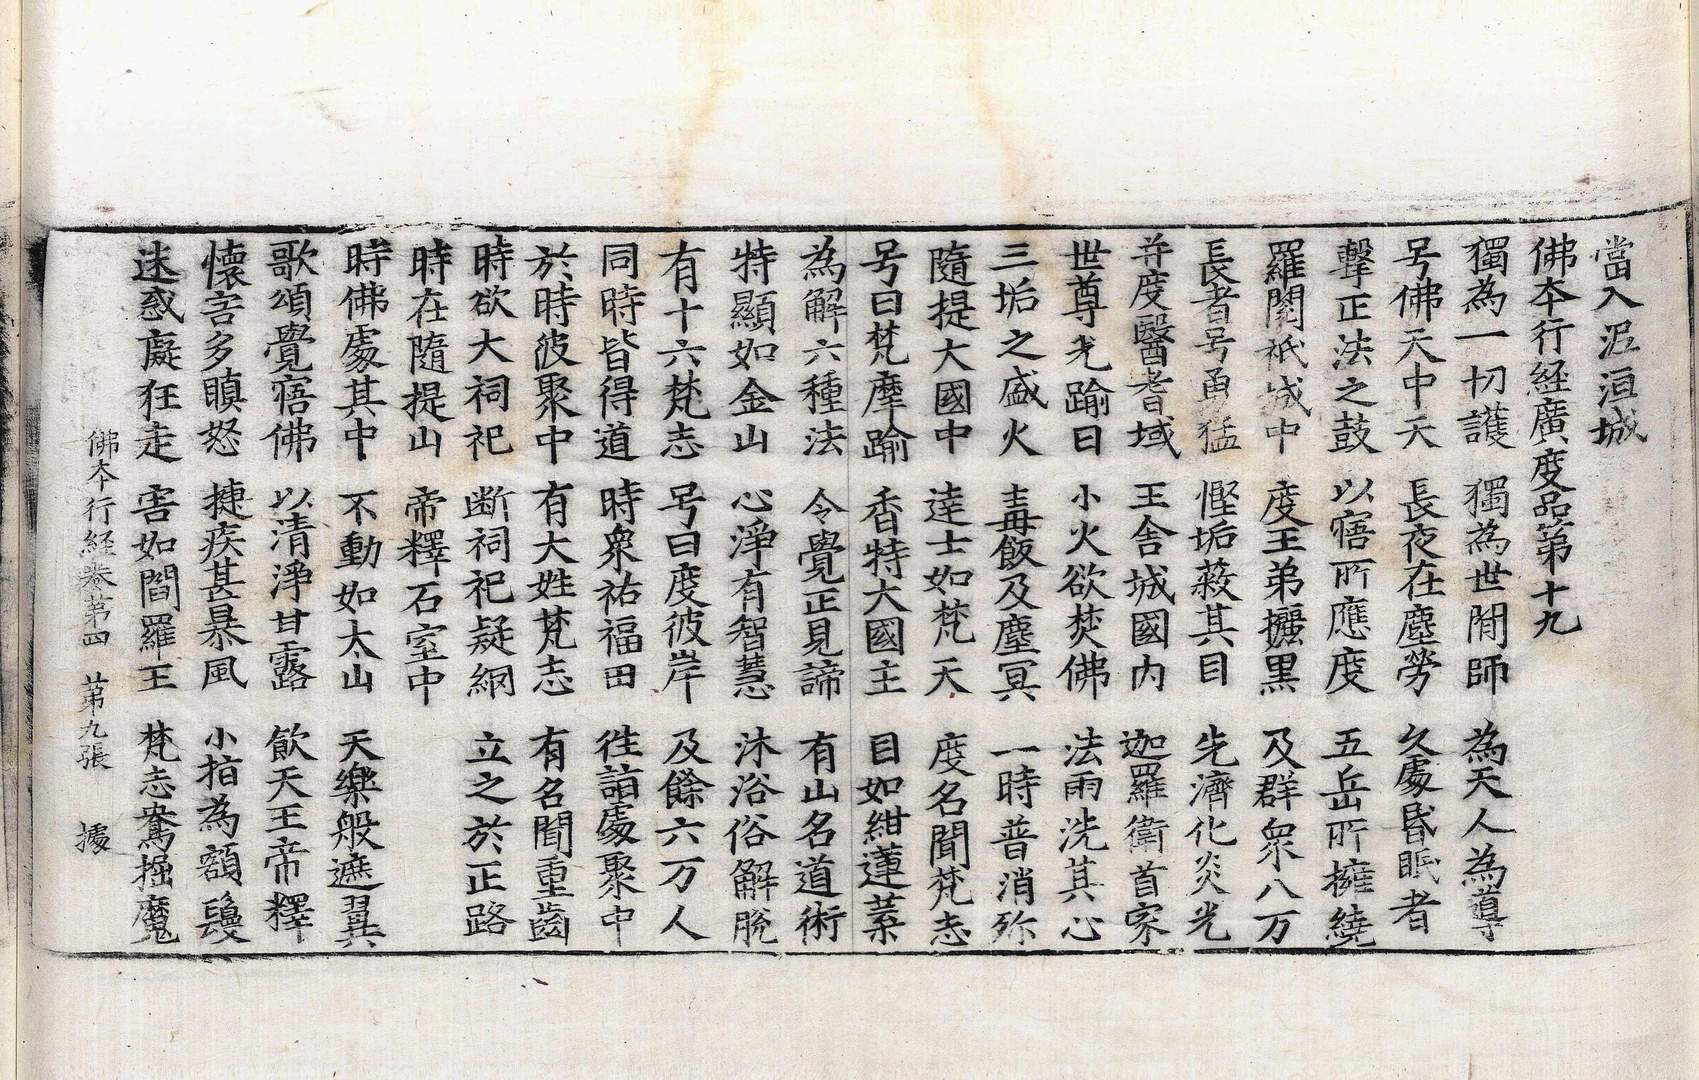 當入泥洹城
佛夲行経廣度品第十九
獨為一切護 獨為世閒師 為天人為導
号佛天中天 長夜在塵勞 久處昏眠者
擊正法之鼓 以寤所應度 五岳所擁繞
羅閱祇城中 度王弟攊黒 及群衆八万
長者号勇猛 慳垢蔽其目 先濟化炎光
并度醫耆域 王舍城國內 迦羅衛首家
世尊光踰日 小火欲焚佛 法雨洗其心
三垢之盛火 毒飯及塵冥 一時普消弥
隨提大國中 逹士如梵天 度名聞梵志
号曰梵摩踰 香特大國主 目如紺蓮葉
為解六種法 令覺正見諦 有山名道術
特顯如金山 心淨有智慧 沐浴俗解脫
有十六梵志 号曰度彼岸 及餘六万人
同時皆得道 時衆祐福田 徃詣處聚中
於時彼聚中 有大姓梵志 有名聞重齒
時欲大祠祀 断祠祀疑網 立之於正路
時在隨提山 帝釋石室中
時佛處其中 不動如太山 天樂般遮翼
歌頌覺寤佛 以清淨甘露 飲天王帝釋
懷害多瞋怒 捷疾甚暴風 小指為額鬘
迷惑癡狂走 害如閻羅王 梵志鴦掘魔
佛夲行経卷第四 苐九張 據